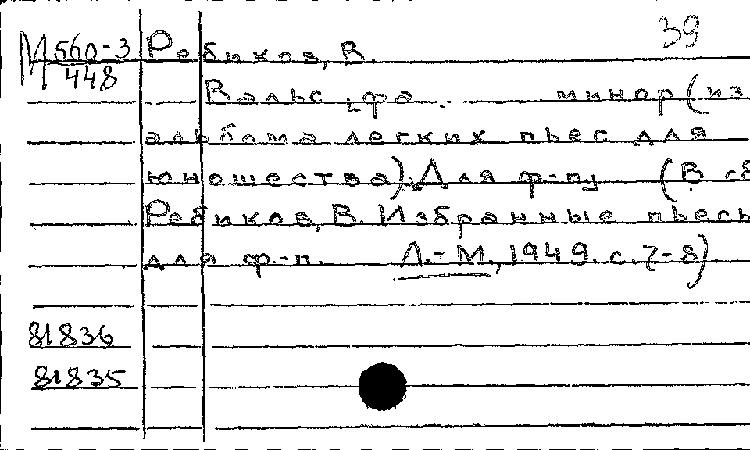 39
М 560-3
448
Ребиков, В.
Вальс, фа минор (из
альбома легких пьес для
юношества). Для ф-пц (В сб
Ребиков, В. Избранные пьесы
для ф-п. Л.-М., 1949. с. 7-8)
81836
81835